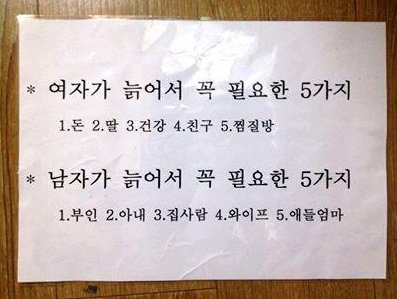 * 여자가 늙어서 꼭 필요한 5가지
1.돈 2.딸 3.건강 4.친구 5.찜질방
* 남자가 늙어서 꼭 필요한 5가지
1.부인 2.아내 3.집사람 4.와이프 5.애들엄마